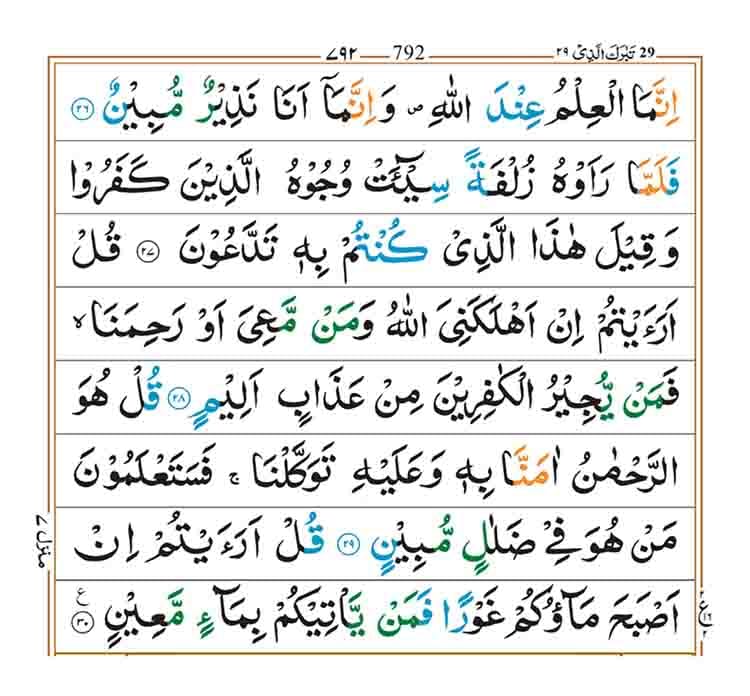 29 تَبٰرَكَ الَّذِیْ ۲۹ 792 ۷۹۲
اِنَّمَا الْعِلْمُ عِنْدَ اللّٰهِ ۪ وَاِنَّمَاۤ اَنَا نَذِیْرٌ مُّبِیْنٌ ﴿۲۶﴾
فَلَمَّا رَاَوْهُ زُلْفَةً سِیْٓـَٔتْ وُجُوْهُ الَّذِیْنَ كَفَرُوْا
وَ قِیْلَ هٰذَا الَّذِیْ كُنْتُمْ بِهٖ تَدَّعُوْنَ ﴿۲۷﴾ قُلْ
اَرَءَیْتُمْ اِنْ اَهْلَكَنِیَ اللّٰهُ وَمَنْ مَّعِیَ اَوْ رَحِمَنَا ۙ
فَمَنْ یُّجِیْرُ الْكٰفِرِیْنَ مِنْ عَذَابٍ اَلِیْمٍ ﴿۲۸﴾ قُلْ هُوَ
الرَّحْمٰنُ اٰمَنَّا بِهٖ وَعَلَیْهِ تَوَكَّلْنَا ۚ فَسَتَعْلَمُوْنَ
مَنْ هُوَ فِیْ ضَلٰلٍ مُّبِیْنٍ ﴿۲۹﴾ قُلْ اَرَءَیْتُمْ اِنْ
اَصْبَحَ مَآؤُكُمْ غَوْرًا فَمَنْ یَّاْتِیْكُمْ بِمَآءٍ مَّعِیْنٍ ﴿۳۰﴾ ع
منزل ۷